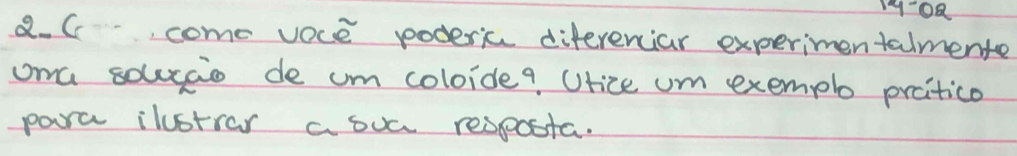 14-02
2- ( ... como você poderia diferenciar experimentalmente
uma solução de um coloíde? Utize um exemplo prático
para ilustrar a sua resposta.